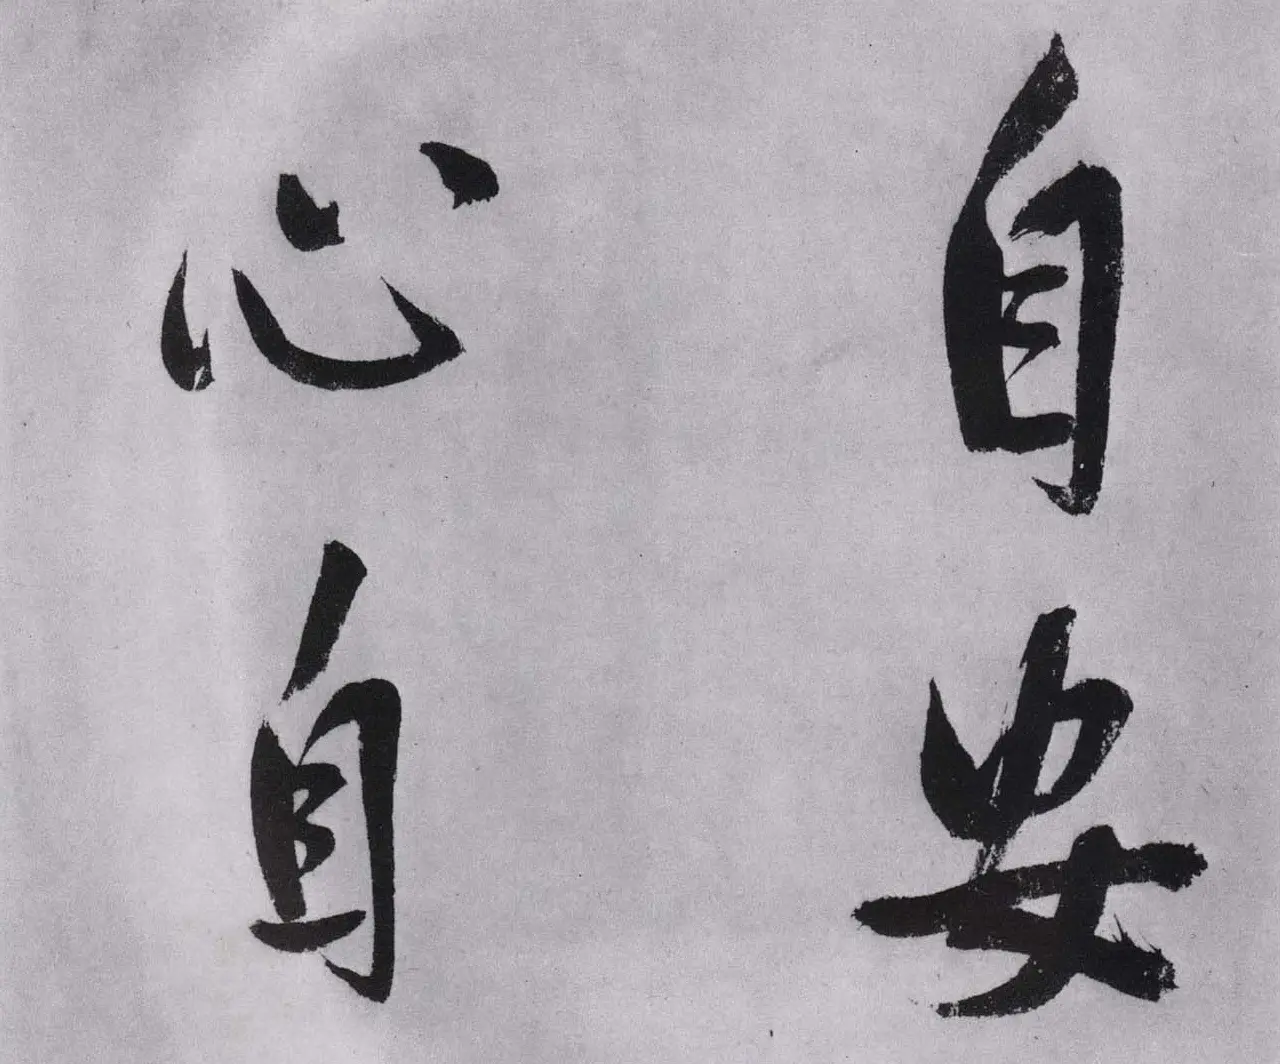 自安
心自